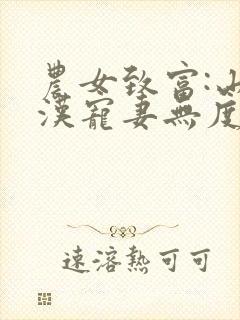 農女致富:山
漢寵妻無度
速溶熱可可